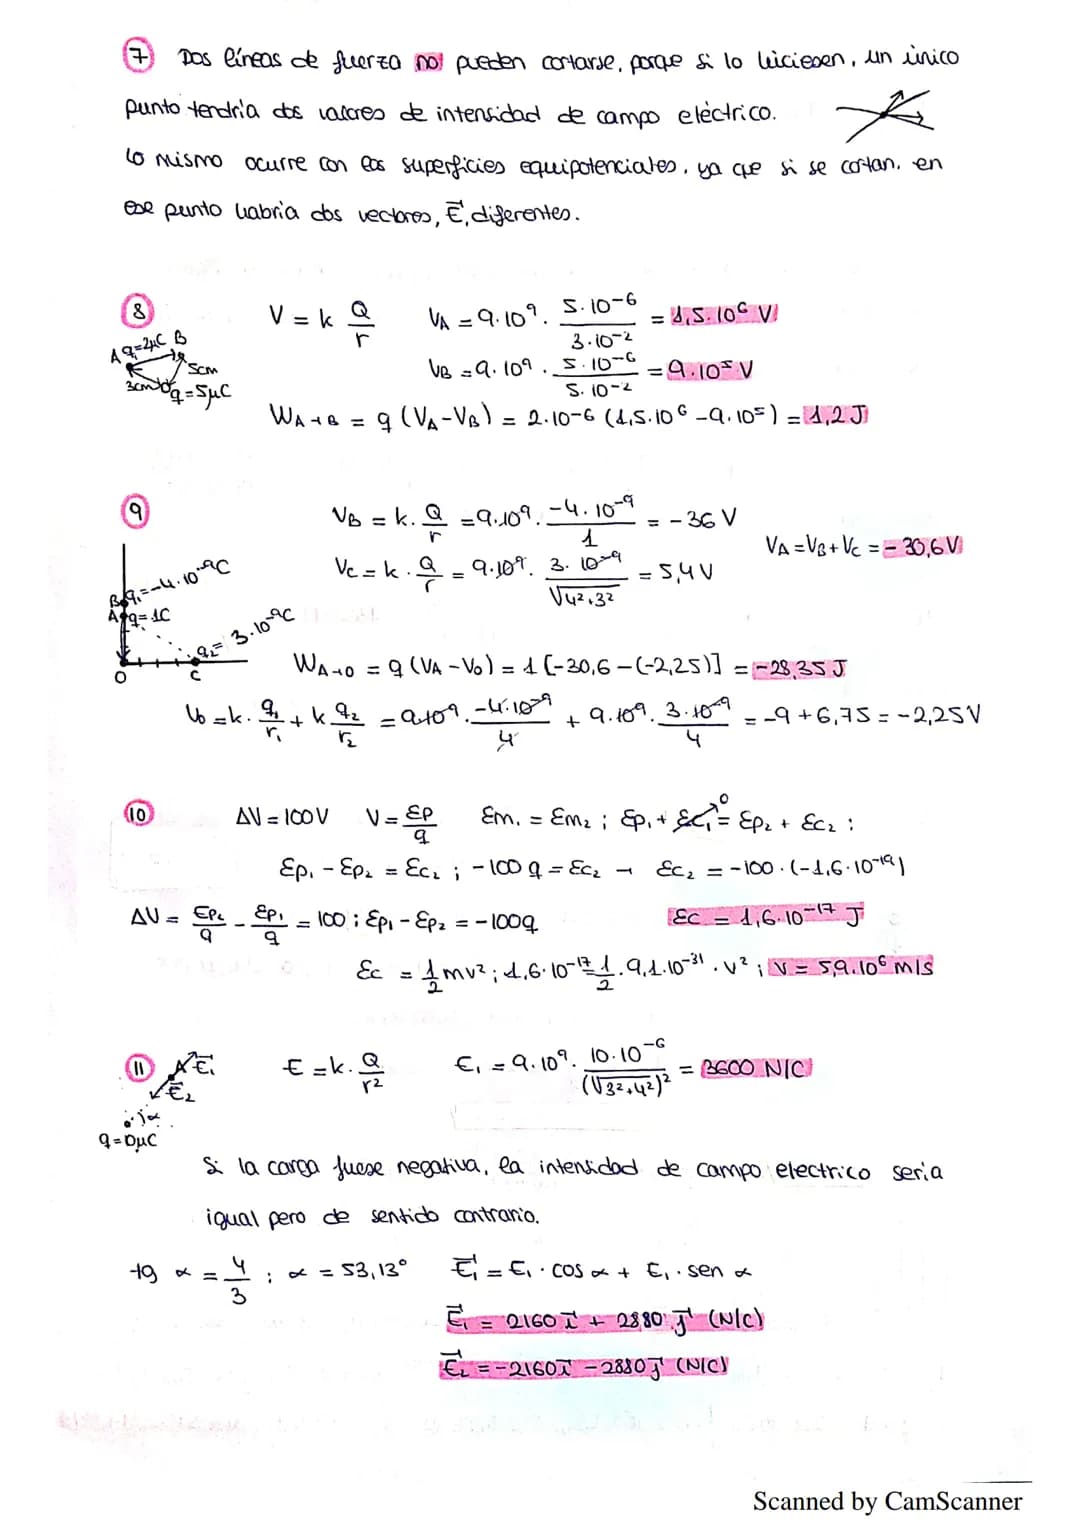 7 Dos líneas de fuerza no pueden cortarse, porque si lo hiciesen, un único
punto tendría dos valores de intensidad de campo eléctrico.
Lo mismo ocurre con las superficies equipotenciales, ya que si se cortan, en
ese punto habría dos vectores, E⃗, diferentes.
8
A q₁=2μC B
5cm
3cm
q=5μC
V = k Q/r   V_A = 9·10⁹ · 5·10⁻⁶ / 3·10⁻² = 1,5·10⁶ V
V_B = 9·10⁹ · 5·10⁻⁶ / 5·10⁻² = 9·10⁵ V
W_A→B = q (V_A – V_B) = 2·10⁻⁶ (1,5·10⁶ – 9·10⁵) = 1,2 J
9
B q₁=-4·10⁻⁹C
A q=1C
q₂= 3·10⁻⁹C
O C
V_B = k · Q/r = 9·10⁹ · -4·10⁻⁹ / 1 = -36 V
V_C = k · Q/r = 9·10⁹ · 3·10⁻⁹ / √4²+3² = 5,4 V
V_A = V_B + V_C = -30,6 V
W_A→O = q (V_A – V_O) = 1 [-30,6 – (-2,25)] = -28,35 J
V_O = k · q₁/r₁ + k q₂/r₂ = 9·10⁹ · -4·10⁻⁹ / 4 + 9·10⁹ · 3·10⁻⁹ / 4 = -9 + 6,75 = -2,25 V
10 ΔV = 100 V   V = Ep/q   Em₁ = Em₂ ; Ep₁ + Ec₁ 0 = Ep₂ + Ec₂ :
Ep₁ – Ep₂ = Ec₂ ; -100 q = Ec₂ → Ec₂ = -100 · (-1,6·10⁻¹⁹)
ΔV = Ep₂/q – Ep₁/q = 100 ; Ep₁ – Ep₂ = -100q   Ec = 1,6·10⁻¹⁷ J
Ec = 1/2 mv² ; 1,6·10⁻¹⁷ = 1/2 · 9,1·10⁻³¹ · v² ; v = 5,9·10⁶ m/s
11 E⃗₁
E⃗₂
α
q=10μC
E = k · Q/r²   E₁ = 9·10⁹ · 10·10⁻⁶ / (√3²+4²)² = 3600 N/C
Si la carga fuese negativa, la intensidad de campo electrico seria
igual pero de sentido contrario.
tg α = 4/3 ; α = 53,13°   E⃗₁ = E₁ · cos α + E₁ · sen α
E⃗₁ = 2160 i⃗ + 2880 j⃗ (N/C)
E⃗₂ = -2160 i⃗ – 2880 j⃗ (N/C)
Scanned by CamScanner